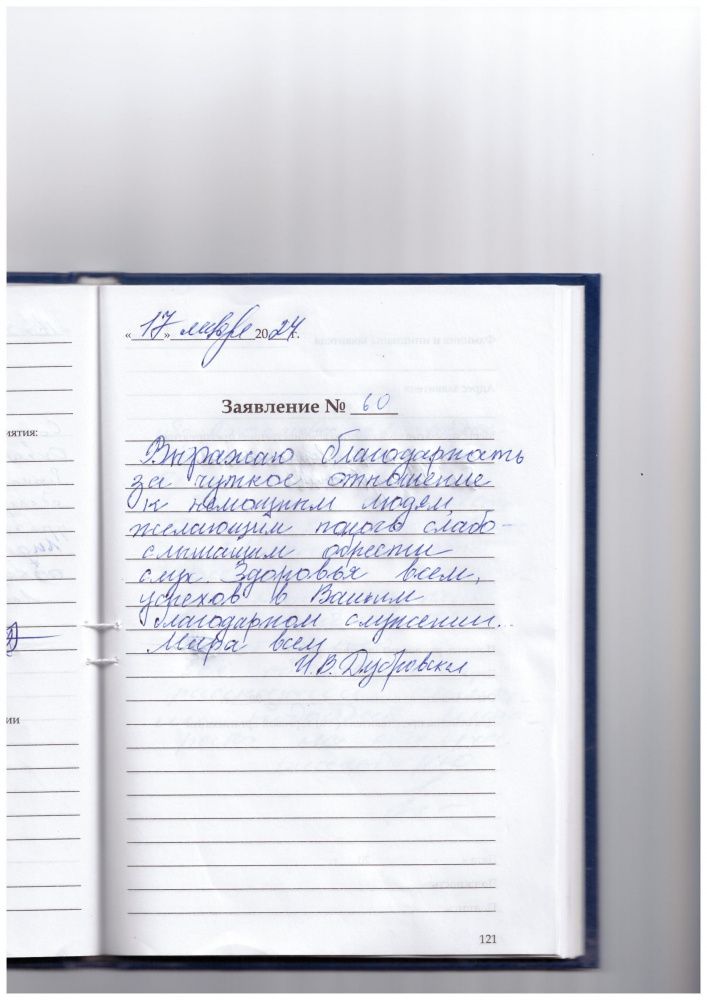 « 17 » января 2024 г.
Заявление № 60
Выражаю благодарность
за чуткое отношение
к немощным людям,
желающим помочь слабо-
слышащим обрести
слух. Здоровья всем,
успехов в Вашем
благодарном служении..
Мира всем
И.В. Дубровская
ятия:
ии
121